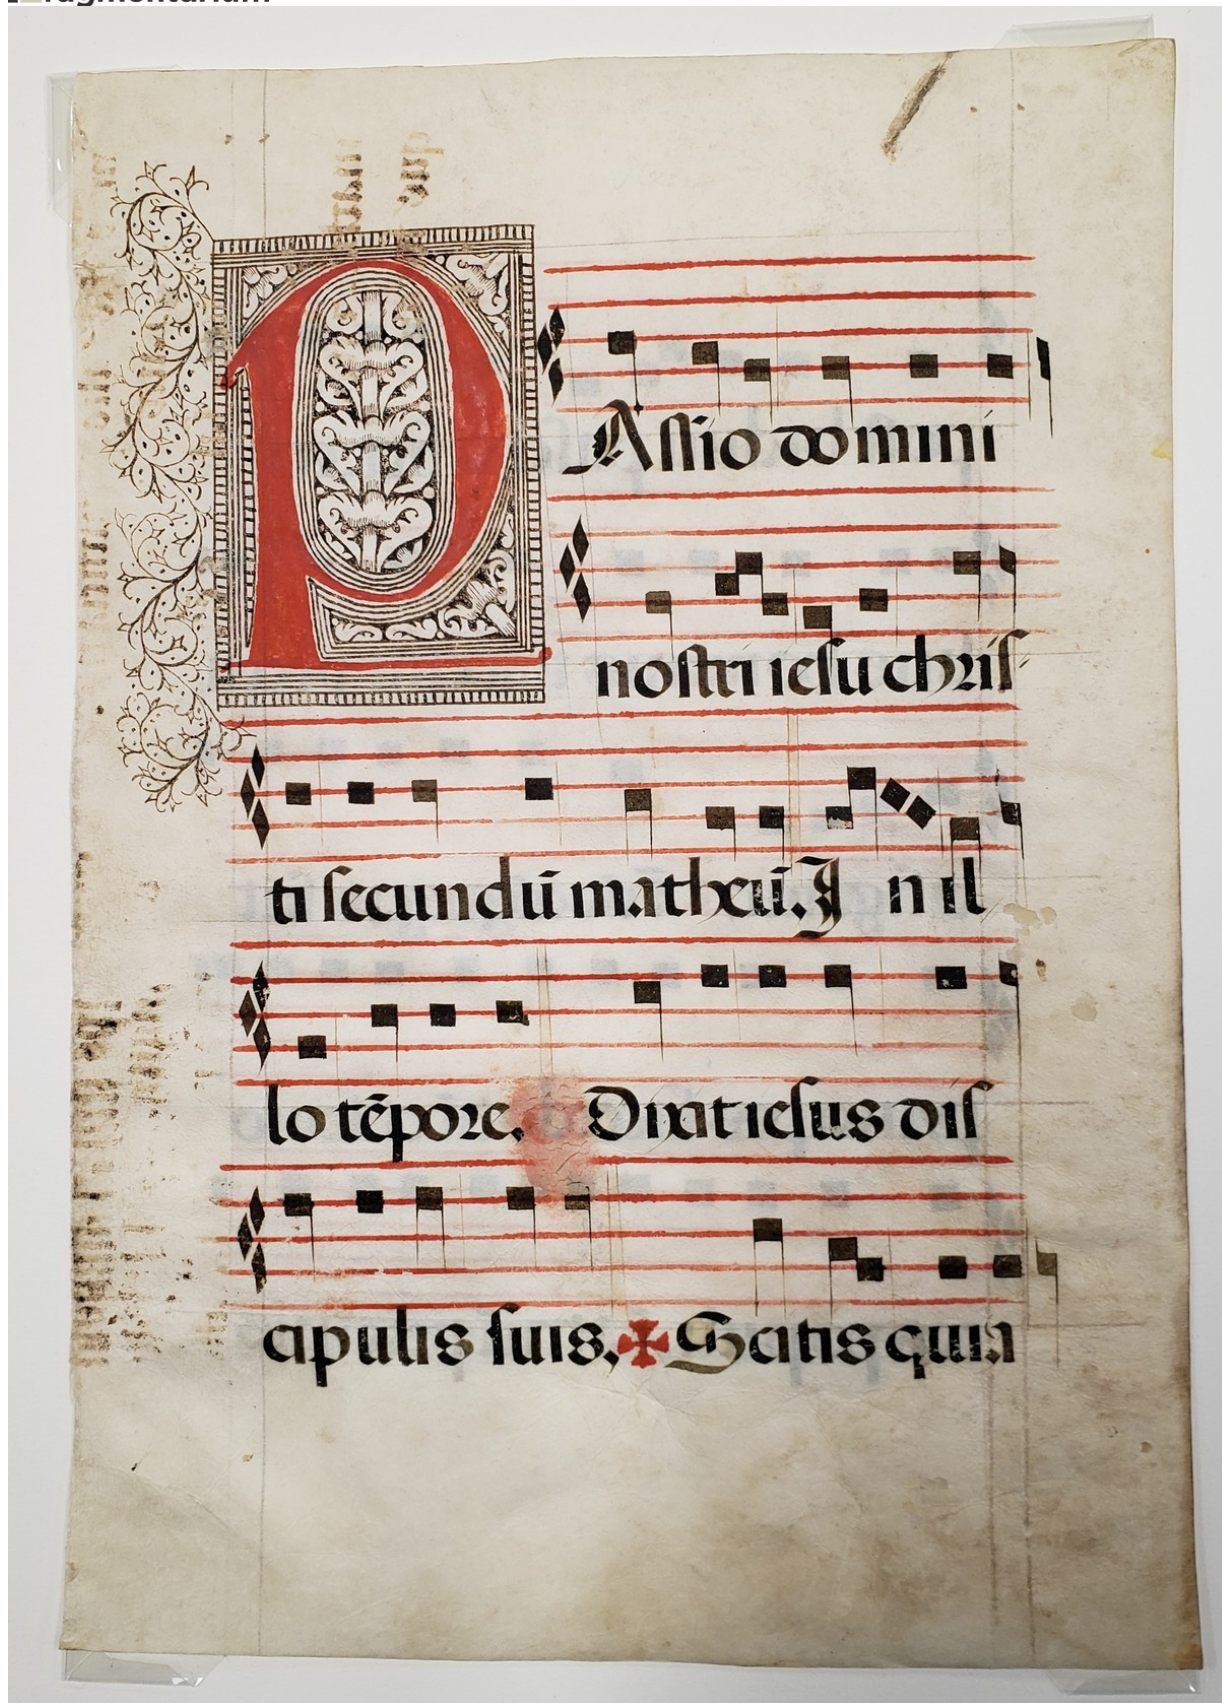 PAssio domini
nostri iesu chris-
ti secundū matheū. In il
lo tēpore. Dixit iesus dis
cipulis suis. ✠ Scitis quia